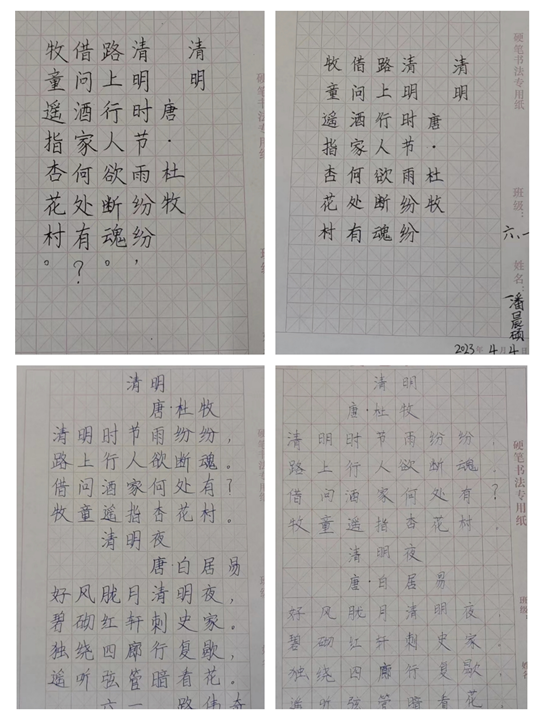 清明
唐·杜牧
清明时节雨纷纷，
路上行人欲断魂。
借问酒家何处有？
牧童遥指杏花村。
硬笔书法专用纸
清明
唐·杜牧
清明时节雨纷纷
路上行人欲断魂
借问酒家何处有
牧童遥指杏花村
硬笔书法专用纸
班级：
六.一
姓名：
潘晨硕
2023年4月4日
清明
唐·杜牧
清明时节雨纷纷，
路上行人欲断魂。
借问酒家何处有？
牧童遥指杏花村。
清明夜
唐·白居易
好风胧月清明夜，
碧砌红轩刺史家。
独绕回廊行复歇，
遥听弦管暗看花。
六一
硬笔书法专用纸
清明
唐·杜牧
清明时节雨纷纷，
路上行人欲断魂。
借问酒家何处有？
牧童遥指杏花村。
清明夜
唐·白居易
好风胧月清明夜
碧砌红轩刺史家.
独绕回廊行复歇，
遥听弦管暗看花
硬笔书法专用纸
班级：